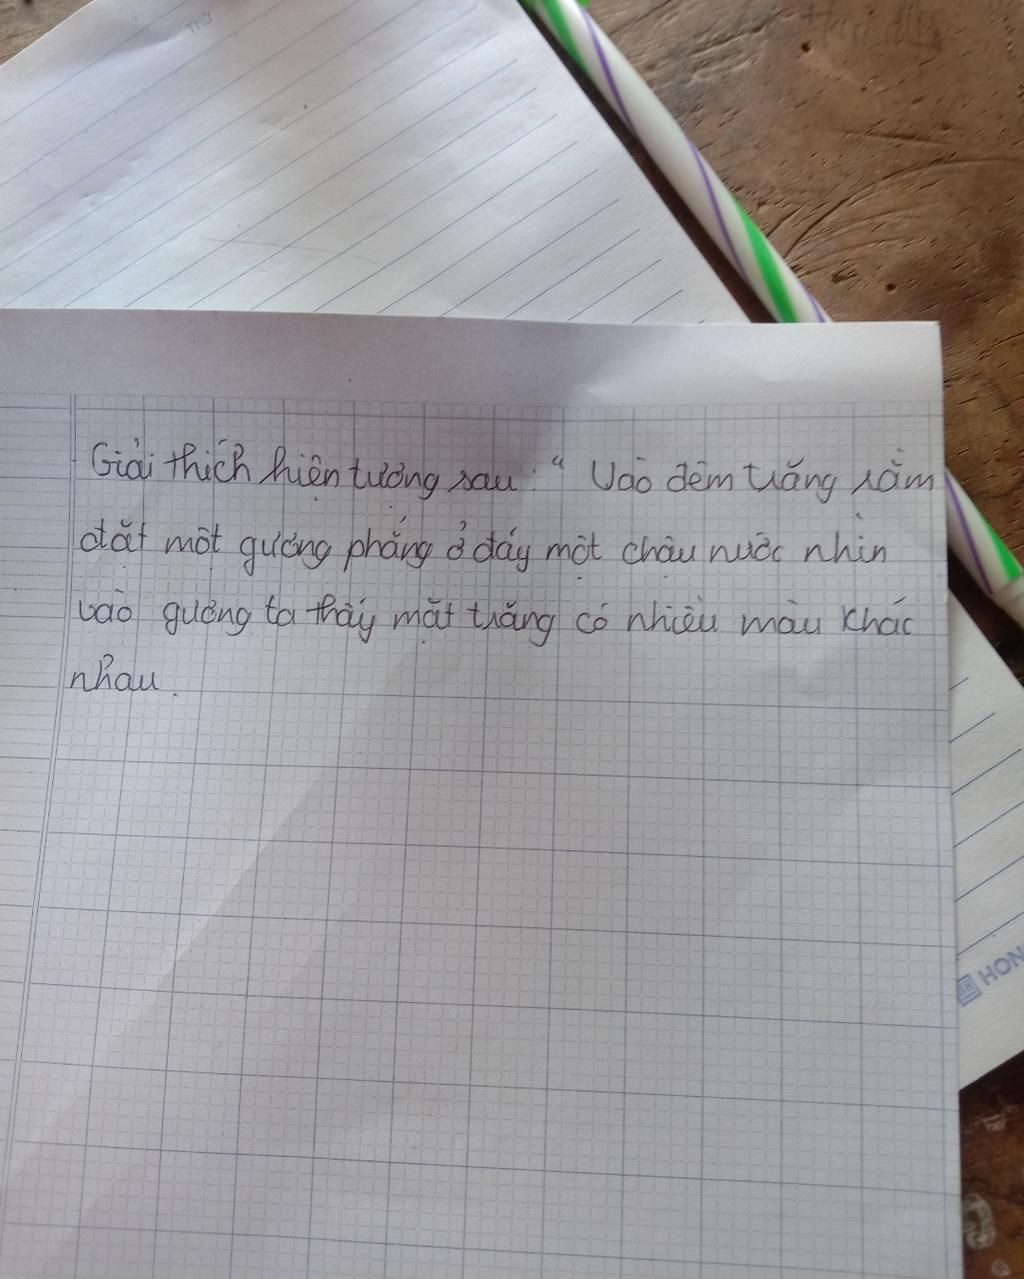 THỨ
Giải thích hiện tượng sau: " Vào đêm trăng rằm
đặt một gương phẳng ở đáy một chậu nước nhìn
vào gương ta thấy mặt trăng có nhiều màu khác
nhau.
HON